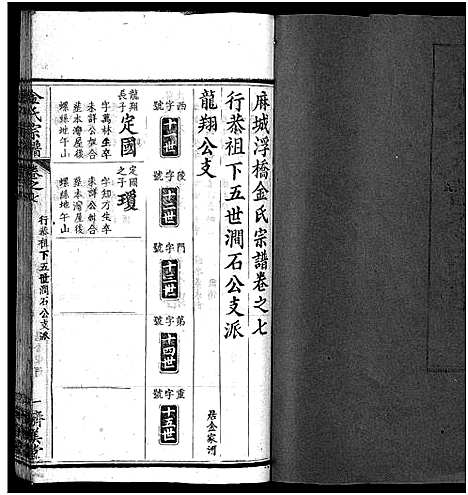 麻城浮橋金氏宗譜卷之七
行恭祖下五世澗石公支派
龍翔公支
居金家河
西字號
十一世
陵字號
十二世
門字號
十三世
第字號
十四世
重字號
十五世
龍翔長子
定國
字萬林生卒
未詳公妣合
塟本灣屋後
螺絲地午山
定國之子
瓊
字知方生卒
未詳公妣合
塟本灣屋後
螺絲地午山
金氏宗譜
卷之七
行恭祖下五世澗石公支派
一